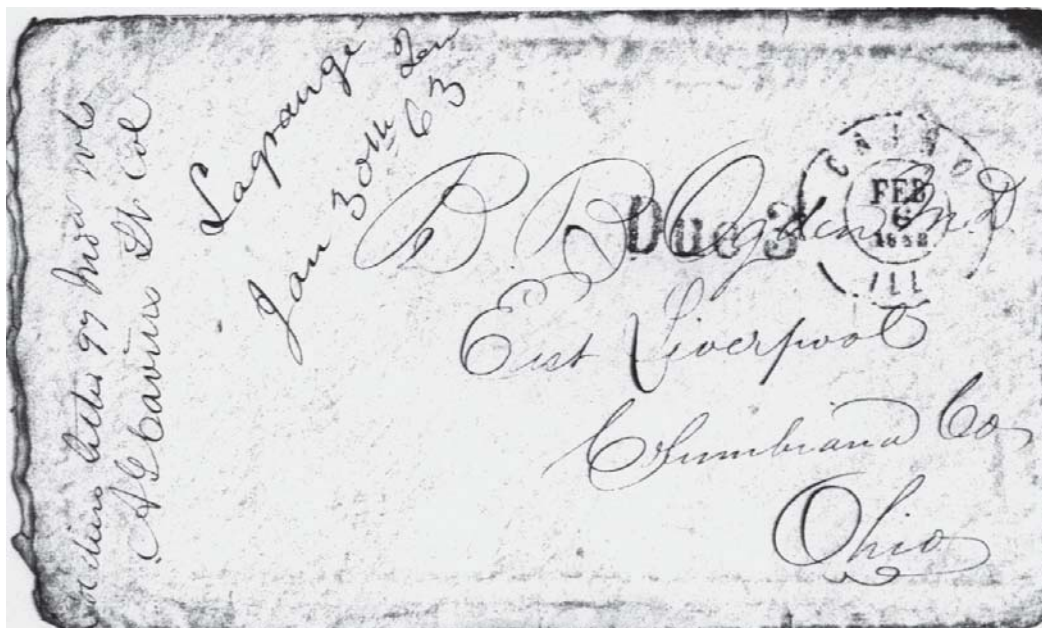 Soldiers letter 97 Inda vols
A G Cavins Lt Col
Lagrange Ten
Jan 30th 63
B B Ogden M.D
Due 3
CAIRO
FEB
6
1863
ILL
East Liverpool
Columbiana Co
Ohio